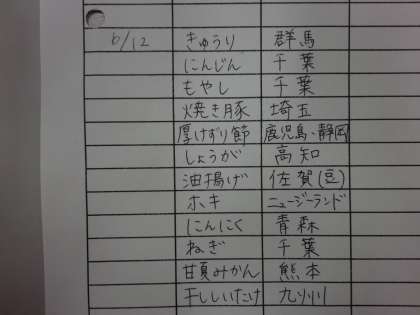 6/12 きゅうり 群馬
にんじん 千葉
もやし 千葉
焼き豚 埼玉
厚けずり節 鹿児島・静岡
しょうが 高知
油揚げ 佐賀(豆)
ホキ ニュージーランド
にんにく 青森
ねぎ 千葉
甘夏みかん 熊本
干ししいたけ 九州